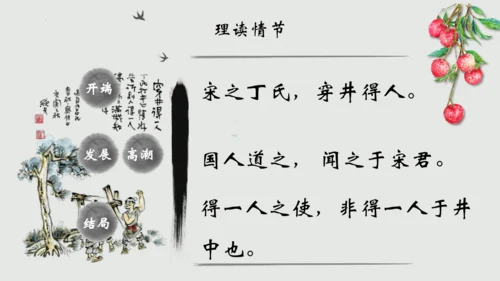 理读情节
开端
宋之丁氏，穿井得人。
发展 高潮
国人道之， 闻之于宋君。
结局
得一人之使，非得一人于井
中也。